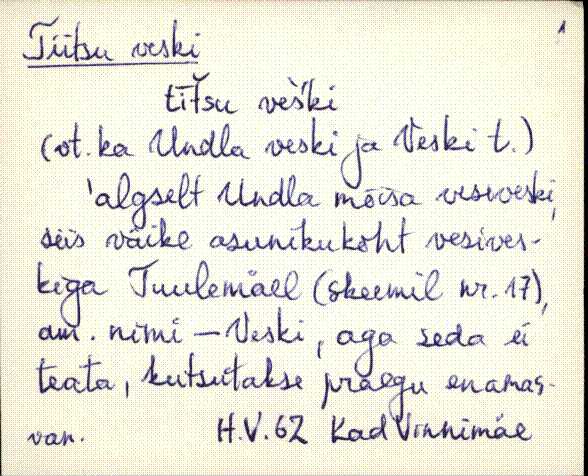 1
Tiitsu veski
tīt̆su veški
(vt. ka Undla veski ja Veski t.)
'algselt Undla mõisa vesiveski,
siis väike asunikukoht vesives-
kiga Tuulemäel (skeemil nr. 17),
am. nimi – Veski, aga seda ei
teata, kutsutakse praegu enamas-
van. H.V. 62 Kad Vinnimäe